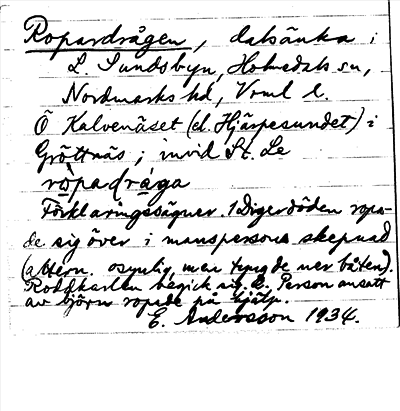 Ropardrågen, dalsänka i
L. Sundsbyn, Holmedals sn,
Nordmarks hd, Vrml l.
Ö Kalvenäset (el. Hjärpesundet) i
Gröttnäs; invid St. Le
ròpadråga
Förklaringssägner. 1 Digerdöden ropa-
de sig över i mansperson skepnad
(altern. osynlig, men tyngde ner båten).
Roddkarlen begick 2. Person ansatt
av björn ropade på hjälp.
E. Andersson 1934.